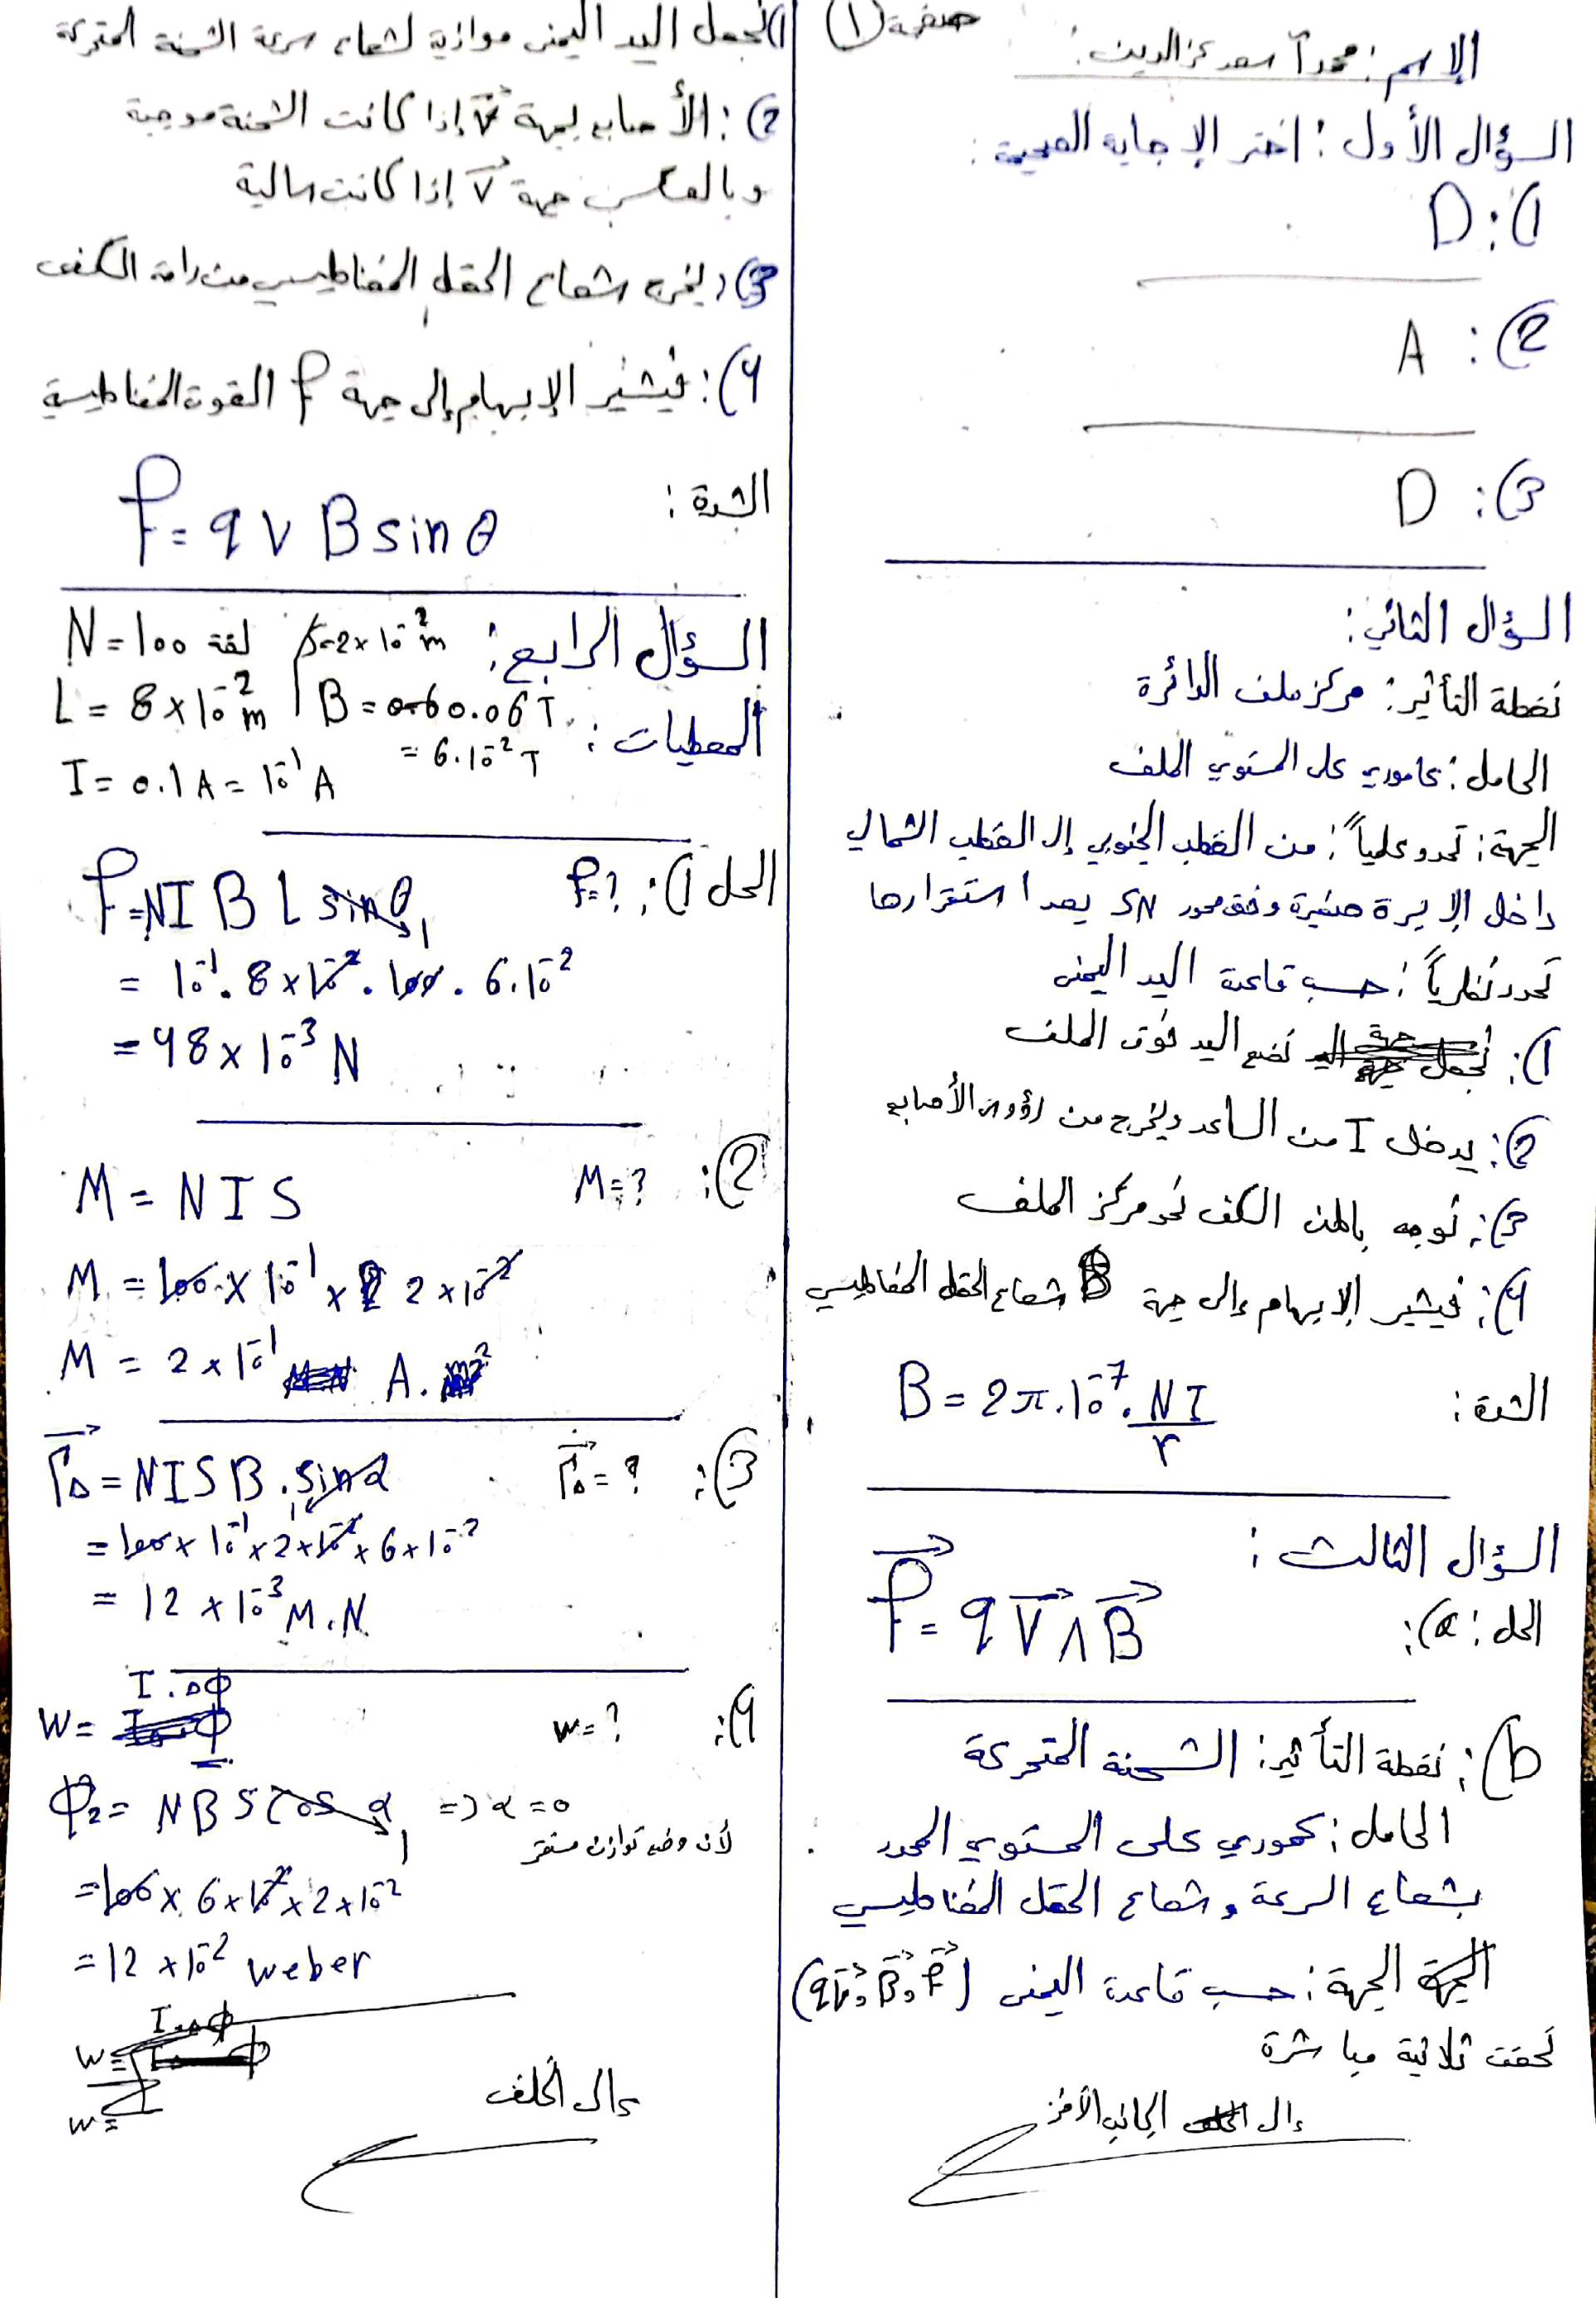 صفحة (1)
الإسم: محمد أسعد عز الدين:
السؤال الأول: اختر الإجابة الصحيحة:
1): D
2): A
3): D
السؤال الثاني:
نقطة التأثير: مركز ملف الدائرة
الحامل: عامودي على المستوي الملف
الجهة: تحدد علمياً: من القطب الجنوبي إلى القطب الشمالي
داخل الإبرة صغيرة وفق محور SN بعد استقرارها
تحدد نظرياً: حسب قاعدة اليد اليمنى
1): نضع اليد فوق الملف
2): يدخل I من الساعد ويخرج من رؤوس الأصابع
3): نوجه باطن الكف نحو مركز الملف
4): فيشير الإبهام إلى جهة B شعاع الحقل المغناطيسي
الشدة: B = 2π.10⁻⁷. NI/r
السؤال الثالث:
الحل: a): F⃗ = qV⃗ ∧ B⃗
b): نقطة التأثير: الشحنة المتحركة
الحامل: عمودي على المستوي المحدد
بشعاع السرعة وشعاع الحقل المغناطيسي
الجهة الجهة: حسب قاعدة اليمنى (qV⃗, B⃗, F⃗)
تحقق ثلاثية مباشرة
إلى الجانب الآخر
1) نجعل اليد اليمنى موازية لشعاع سرعة الشحنة المتحركة
2): الأصابع بجهة V⃗ إذا كانت الشحنة موجبة
وبالعكس جهة V⃗ إذا كانت سالبة
3): يخرج شعاع الحقل المغناطيسي من راحة الكف
4): فيشير الإبهام إلى جهة F القوة المغناطيسية
الشدة:
F = q V B sin θ
السؤال الرابع: S=2×10⁻² m N = 100 لفة
المعطيات: B = 0.06 T L = 8×10⁻² m
= 6.10⁻² T
I = 0.1 A = 10⁻¹ A
الحل 1): F=?
F = NI B L sin θ 1
= 10⁻¹. 8×10⁻². 100. 6.10⁻²
= 48×10⁻³ N
2): M=?
M = N I S
M = 100 × 10⁻¹ × 2×10⁻²
M = 2×10⁻¹ A. m²
3): Γ⃗Δ = ?
Γ⃗Δ = NISB . sin α 1
= 100 × 10⁻¹ × 2×10⁻² × 6×10⁻²
= 12×10⁻³ M.N
4): W=?
W = I.ΔΦ
Φ2 = N B S cos α 1 => α=0
لأن وضع توازن مستقر
= 100 × 6×10⁻² × 2×10⁻²
= 12×10⁻² weber
I.ΔΦ
W=
W=
إلى الخلف